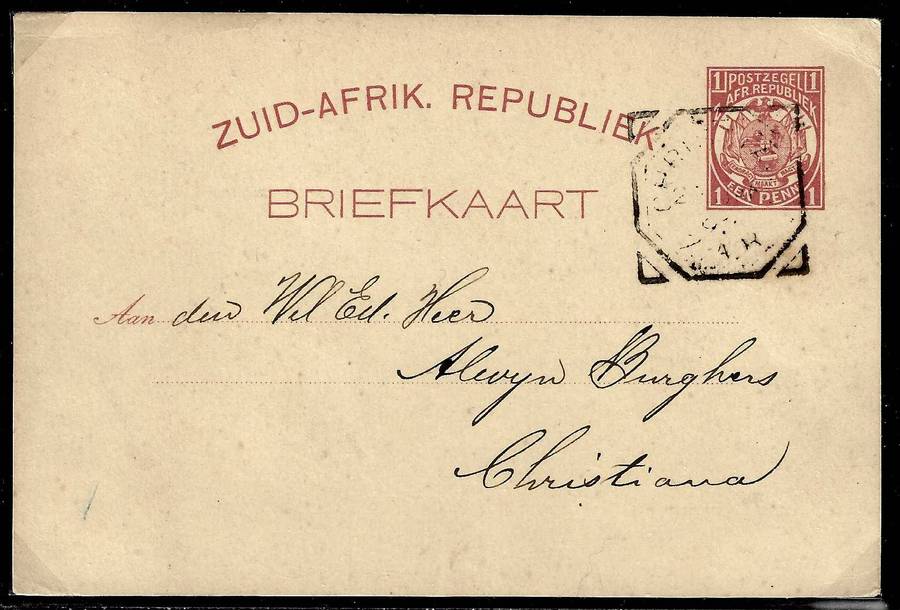 ZUID-AFRIK. REPUBLIEK
1 POSTZEGEL 1
AFR. REPUBLIEK
1 EEN PENNY 1
BRIEFKAART
Z.A.R.
Aan den Wel Ed. Heer
Alwyn Burghers
Christiana